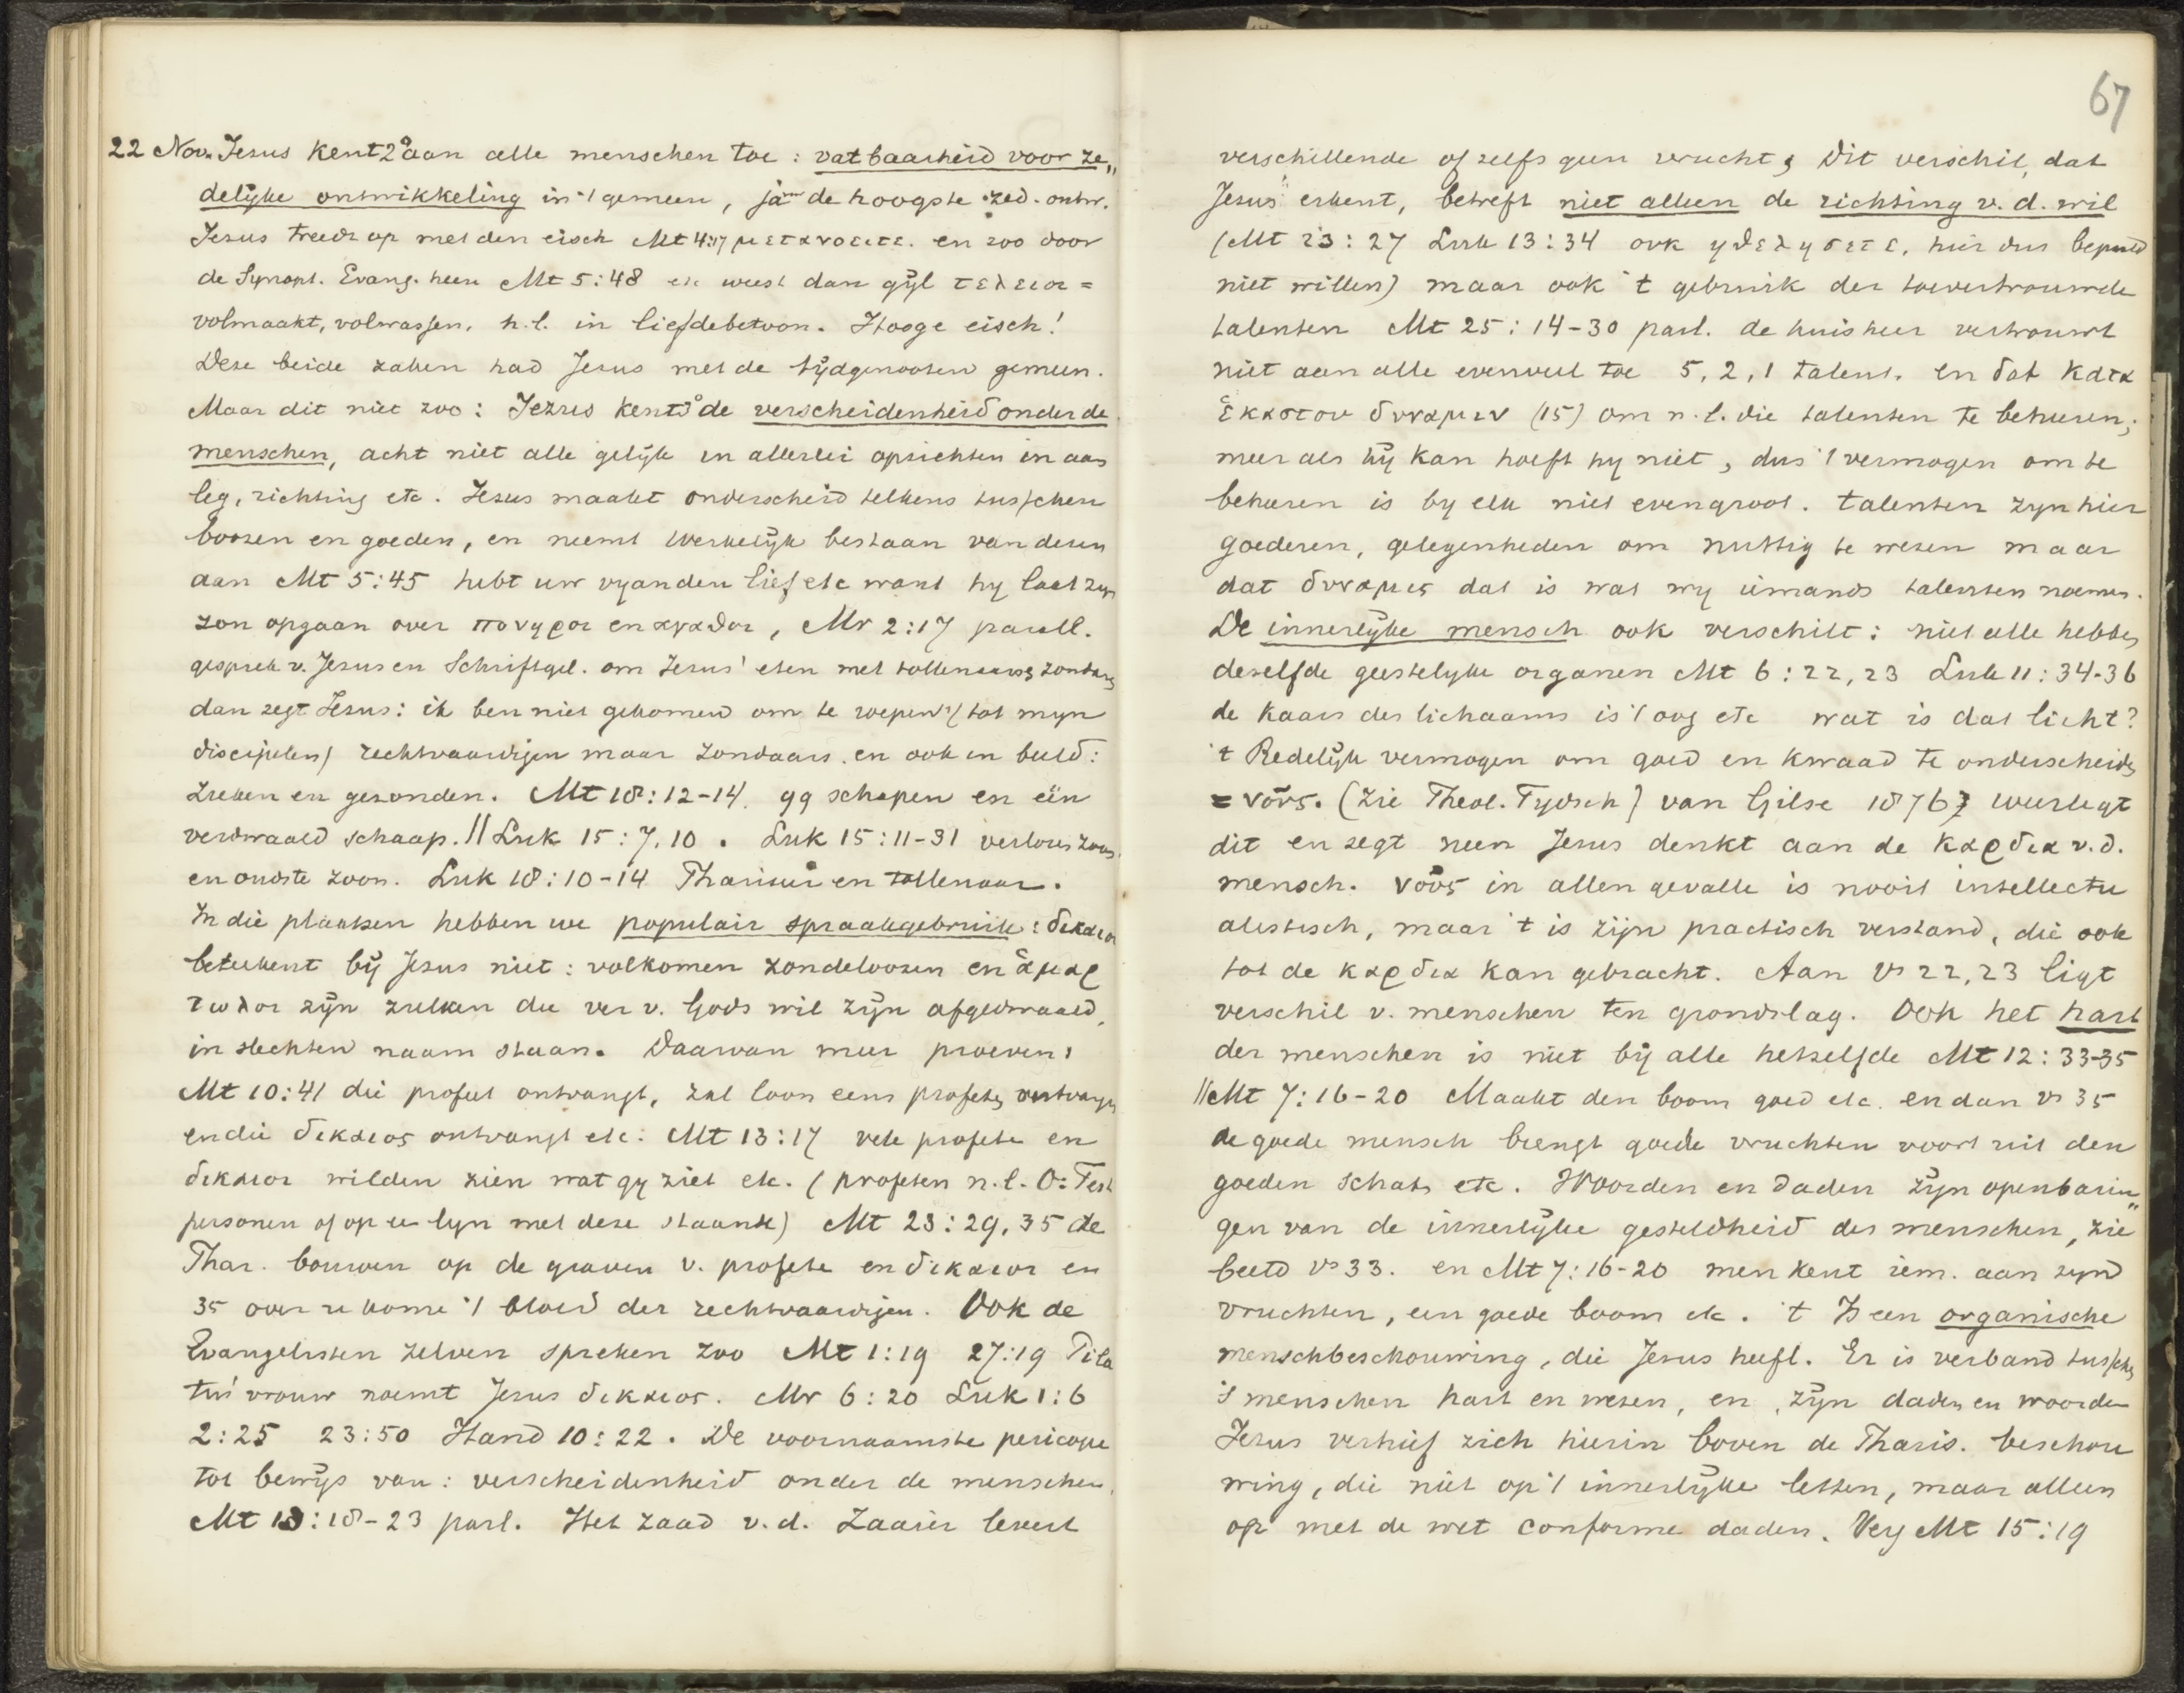 22 Nov. Jezus kent 2° aan alle menschen toe: vatbaarheid voor ze„
delijke ontwikkeling in 't gemeen, ja de hoogste zed. ontw.
Jezus treedt op met den eisch Mt 4:17 μετανοειτε. en zoo door
de Synopt. Evang. heen Mt 5:48 etc weest dan gijl τελειοι =
volmaakt, volwassen, n.l. in liefdebetoon. Hooge eisch!
Deze beide zaken had Jezus met de tijdgenooten gemeen.
Maar dit niet zoo: Jezus kent 3° de verscheidenheid onder de
menschen, acht niet alle gelijk in allerlei opzichten in aan
leg, richting etc. Jezus maakt onderscheid telkens tusschen
boozen en goeden, en neemt werkelijk bestaan van dezen
aan Mt 5:45 hebt uw vyanden lief etc want hy laat zyn
zon opgaan over πονηροι en αγαθοι, Mr 2:17 parall.
gesprek v. Jezus en Schriftgel. om Jezus' eten met tollenaars & zondaars
dan zegt Jezus: ik ben niet gekomen om te roepen (tot myn
discipelen) rechtvaardigen maar zondaars. en ook in beeld:
zieken en gezonden. Mt 18:12-14. 99 schapen en één
verdwaald schaap. || Luk 15:7,10. Luk 15:11-31 verloren zoon
en oudste zoon. Luk 18:10-14 Phariseër en tollenaar.
In die plaatsen hebben we populair spraakgebruik: δικαιοι
beteekent bij Jezus niet: volkomen zondeloozen en ἁμαρ
τωλοι zijn zulken die ver v. Gods wil zijn afgedwaald,
in slechten naam staan. Daarvan meer proeven:
Mt 10:41 die profeet ontvangt, zal loon eens profeten ontvangen
en die δικαιος ontvangt etc: Mt 13:17 vele profeten en
δικαιοι wilden zien wat gy ziet etc. (profeten n.l. O: Test
personen of op ee lyn met deze staande) Mt 23:29,35 de
Phar. bouwen op de graven v. profete en δικαιοι en
35 over u kome 't bloed der rechtvaardigen. Ook de
Evangelisten zelven spreken zoo Mt 1:19 27:19 Pila
tus' vrouw noemt Jezus δικαιος. Mr 6:20 Luk 1:6
2:25 23:50 Hand 10:22. De voornaamste pericope
tot bewijs van: verscheidenheid onder de menschen,
Mt 13:18-23 parl. Het zaad v.d. Zaaier levert
67
verschillende of zelfs geen vrucht, Dit verschil, dat
Jezus erkent, betreft niet alleen de richting v.d. wil
(Mt 23:27 Luk 13:34 ουκ ηθελησετε, hier dus bepaald
niet willen) maar ook 't gebruik der toevertrouwde
talenten Mt 25:14-30 parl. de huisheer vertrouwt
niet aan alle evenveel toe 5, 2, 1 talent, en dat κατα
ἑκαστου δυναμιν (15) om n.l. die talenten te beheeren;
meer als hij kan hoeft hy niet, dus 't vermogen om te
beheeren is by elk niet even groot. talenten zyn hier
goederen, gelegenheden om nuttig te wezen maar
dat δυναμις dat is wat wy iemands talenten noemen.
De innerlijke mensch ook verschilt: niet alle hebben
dezelfde geestelyke organen Mt 6:22,23 Luk 11:34-36
de kaars des lichaams is 't oog etc wat is dat licht?
't Redelijk vermogen om goed en kwaad te onderscheiden
= νοῦς. (zie Theol. Tydsch) van Gilse 1876} weerlegt
dit en zegt neen Jezus denkt aan de καρδια v.d.
mensch. νοῦς in allen gevalle is nooit intellectu
alistisch, maar 't is zijn practisch verstand, die ook
tot de καρδια kan gebracht. Aan vs 22,23 ligt
verschil v. menschen ten grondslag. Ook het hart
der menschen is niet bij alle hetzelfde Mt 12:33-35
|| Mt 7:16-20 Maakt den boom goed etc. en dan vs 35
de goede mensch brengt goede vruchten voort uit den
goeden schat etc. Woorden en daden zijn openbarin„
gen van de innerlijke gesteldheid des menschen, zie
beeld vs 33. en Mt 7:16-20 men kent iem. aan zijn
vruchten, een goede boom etc. 't Is een organische
menschbeschouwing, die Jezus heeft. Er is verband tusschen
's menschen hart en wezen, en zijn daden en woorden
Jezus verhief zich hierin boven de Pharis. beschou
wing, die niet op 't innerlijke letten, maar alleen
op met de wet conforme daden. Verg Mt 15:19